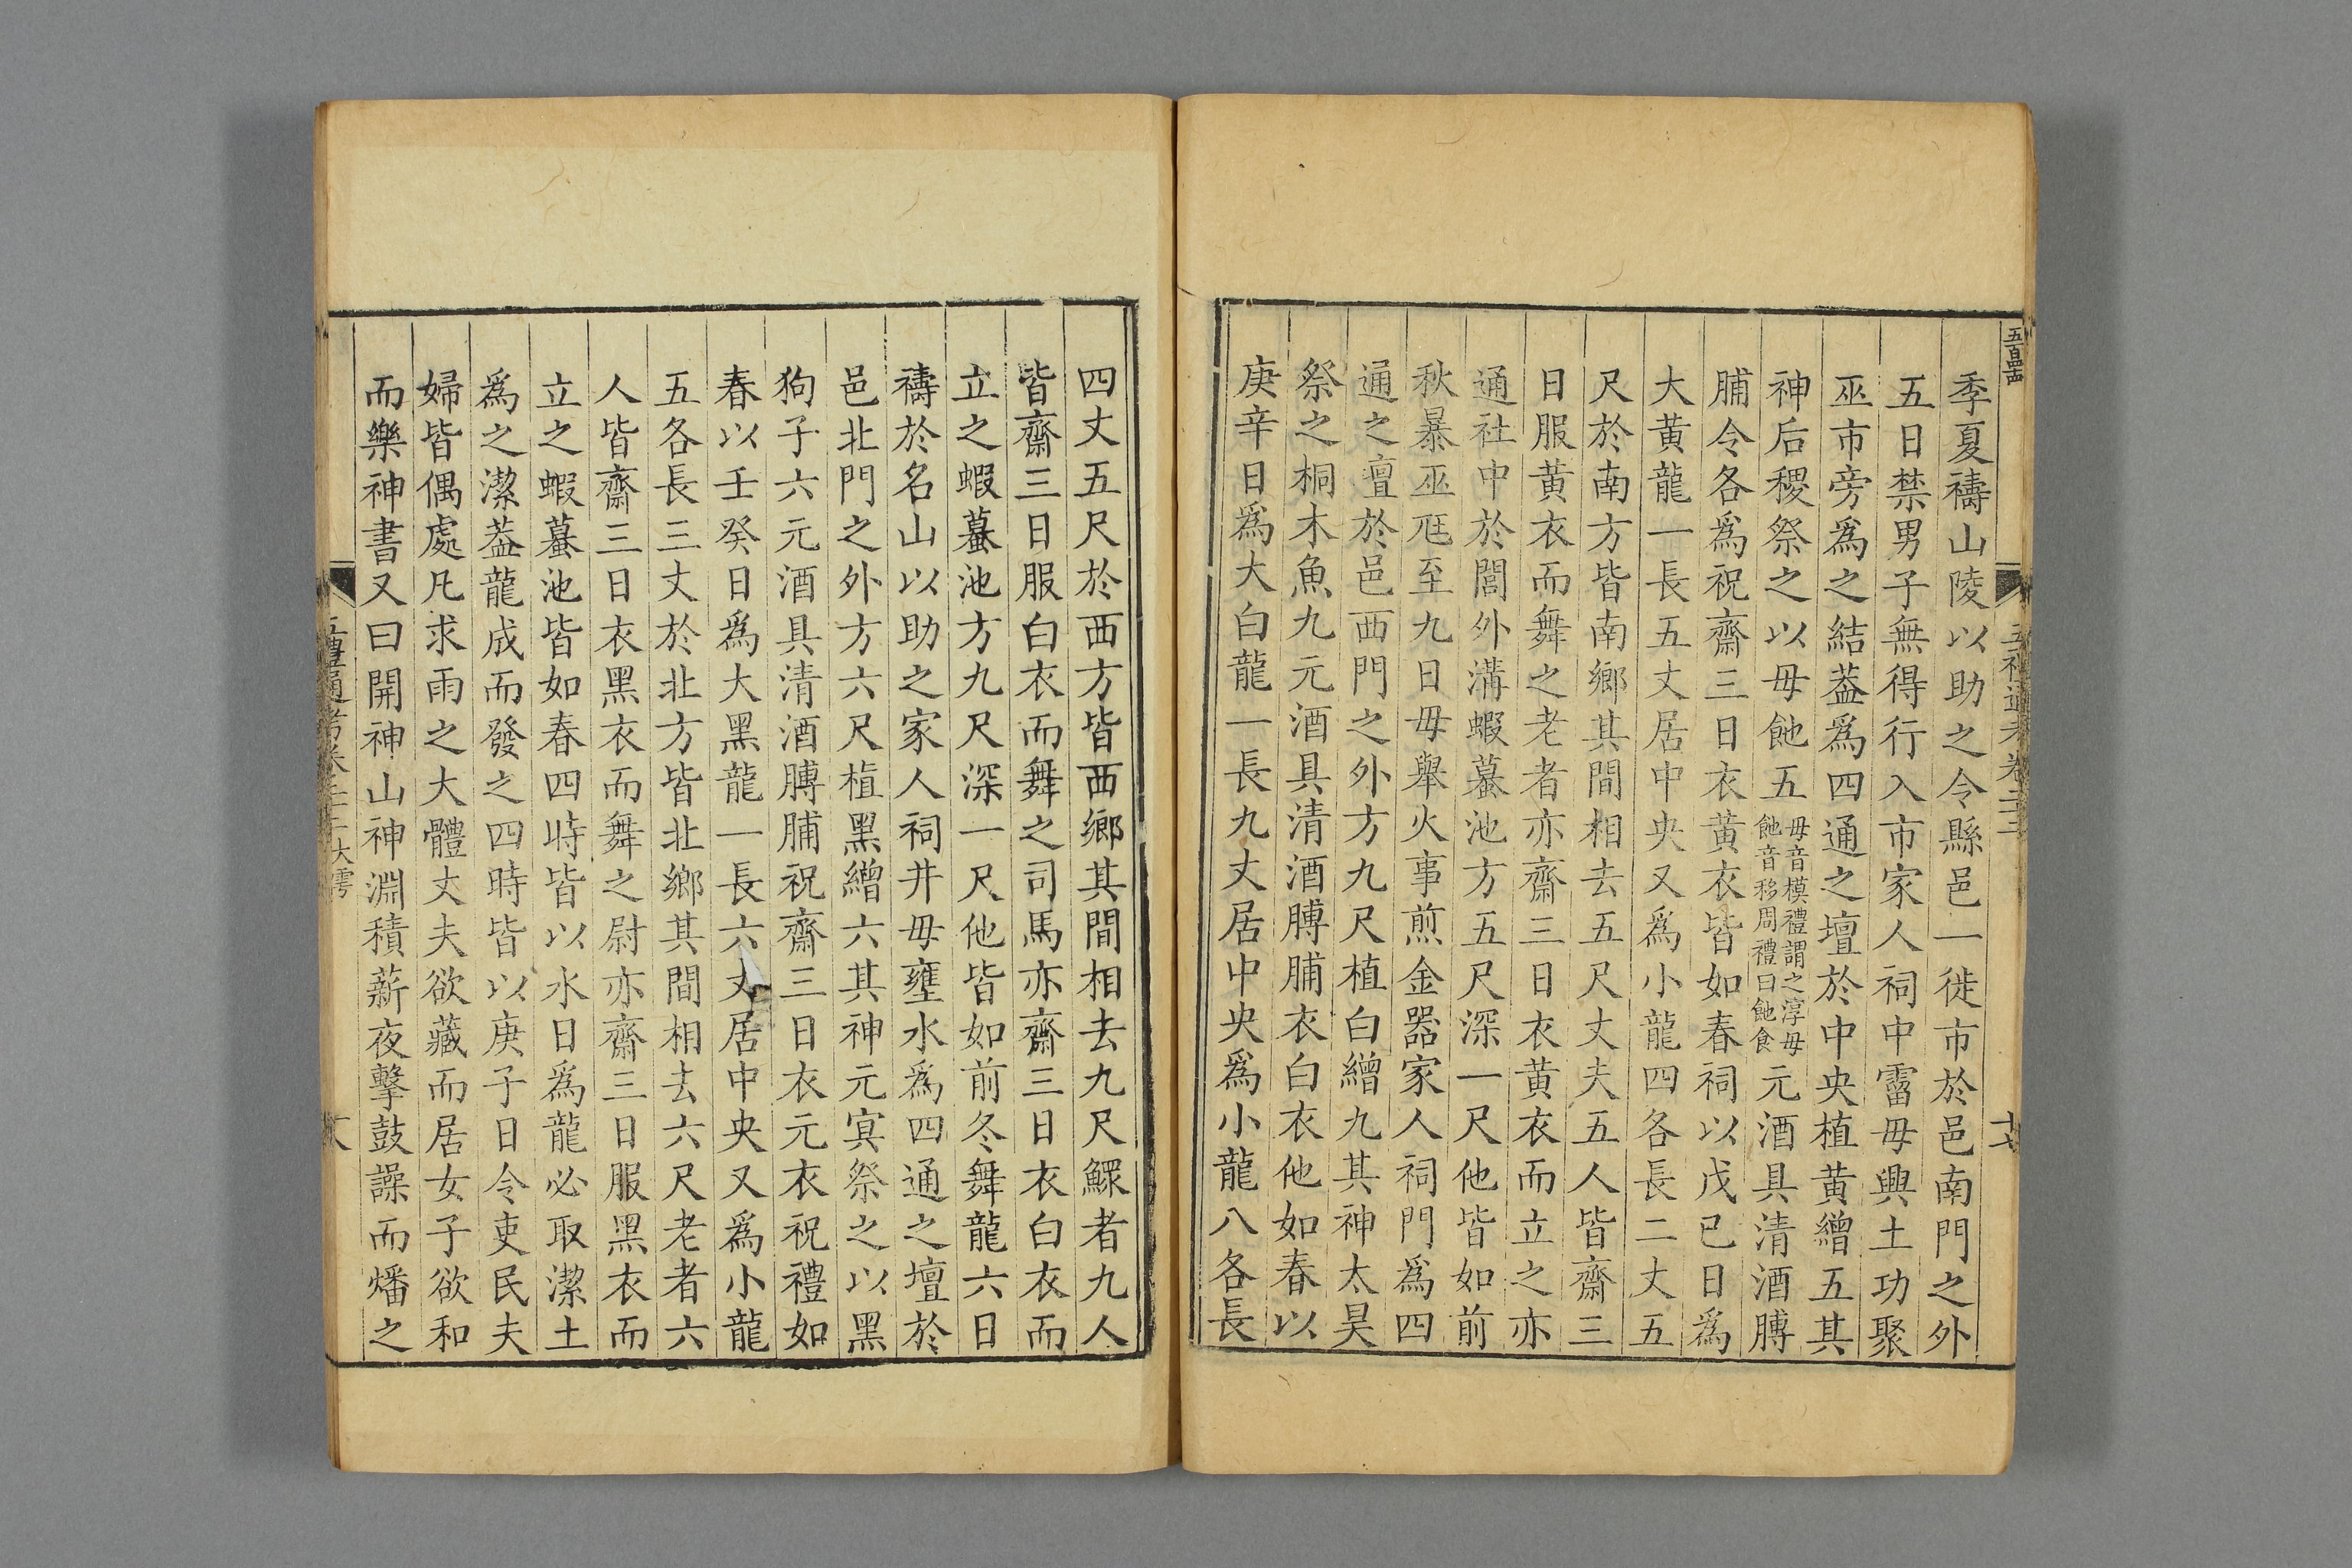 季夏禱山陵以助之令縣邑一徙市於邑南門之外
五日禁男子無得行入市家人祠中霤毋興土功聚
巫市旁爲之結葢爲四通之壇於中央植黃繒五其
神后稷祭之以毋𩚬五毋音模禮謂之淳毋𩚬音移周禮曰𩚬食元酒具清酒膊
脯令各爲祝齋三日衣黃衣皆如春祠以戊巳日爲
大黃龍一長五丈居中央又爲小龍四各長二丈五
尺於南方皆南鄉其間相去五尺丈夫五人皆齋三
日服黃衣而舞之老者亦齋三日衣黃衣而立之亦
通社中於閭外溝蝦蟇池方五尺深一尺他皆如前
秋暴巫尫至九日毋舉火事煎金器家人祠門爲四
通之壇於邑西門之外方九尺植白繒九其神太昊
祭之桐木魚九元酒具清酒膊脯衣白衣他如春以
庚辛日爲大白龍一長九丈居中央爲小龍八各長
四丈五尺於西方皆西鄉其間相去九尺鰥者九人
皆齋三日服白衣而舞之司馬亦齋三日衣白衣而
立之蝦蟇池方九尺深一尺他皆如前冬舞龍六日
禱於名山以助之家人祠井毋壅水爲四通之壇於
邑北門之外方六尺植黑繒六其神元冥祭之以黑
狗子六元酒具清酒膊脯祝齋三日衣元衣祝禮如
春以壬癸日爲大黑龍一長六丈居中央又爲小龍
五各長三丈於北方皆北鄉其間相去六尺老者六
人皆齋三日衣黑衣而舞之尉亦齋三日服黑衣而
立之蝦蟇池皆如春四時皆以水日爲龍必取潔土
爲之潔葢龍成而發之四時皆以庚子日令吏民夫
婦皆偶處凡求雨之大體丈夫欲藏而居女子欲和
而樂神書又曰開神山神淵積薪夜擊鼓譟而燔之
五禮通考卷二十二 大雩